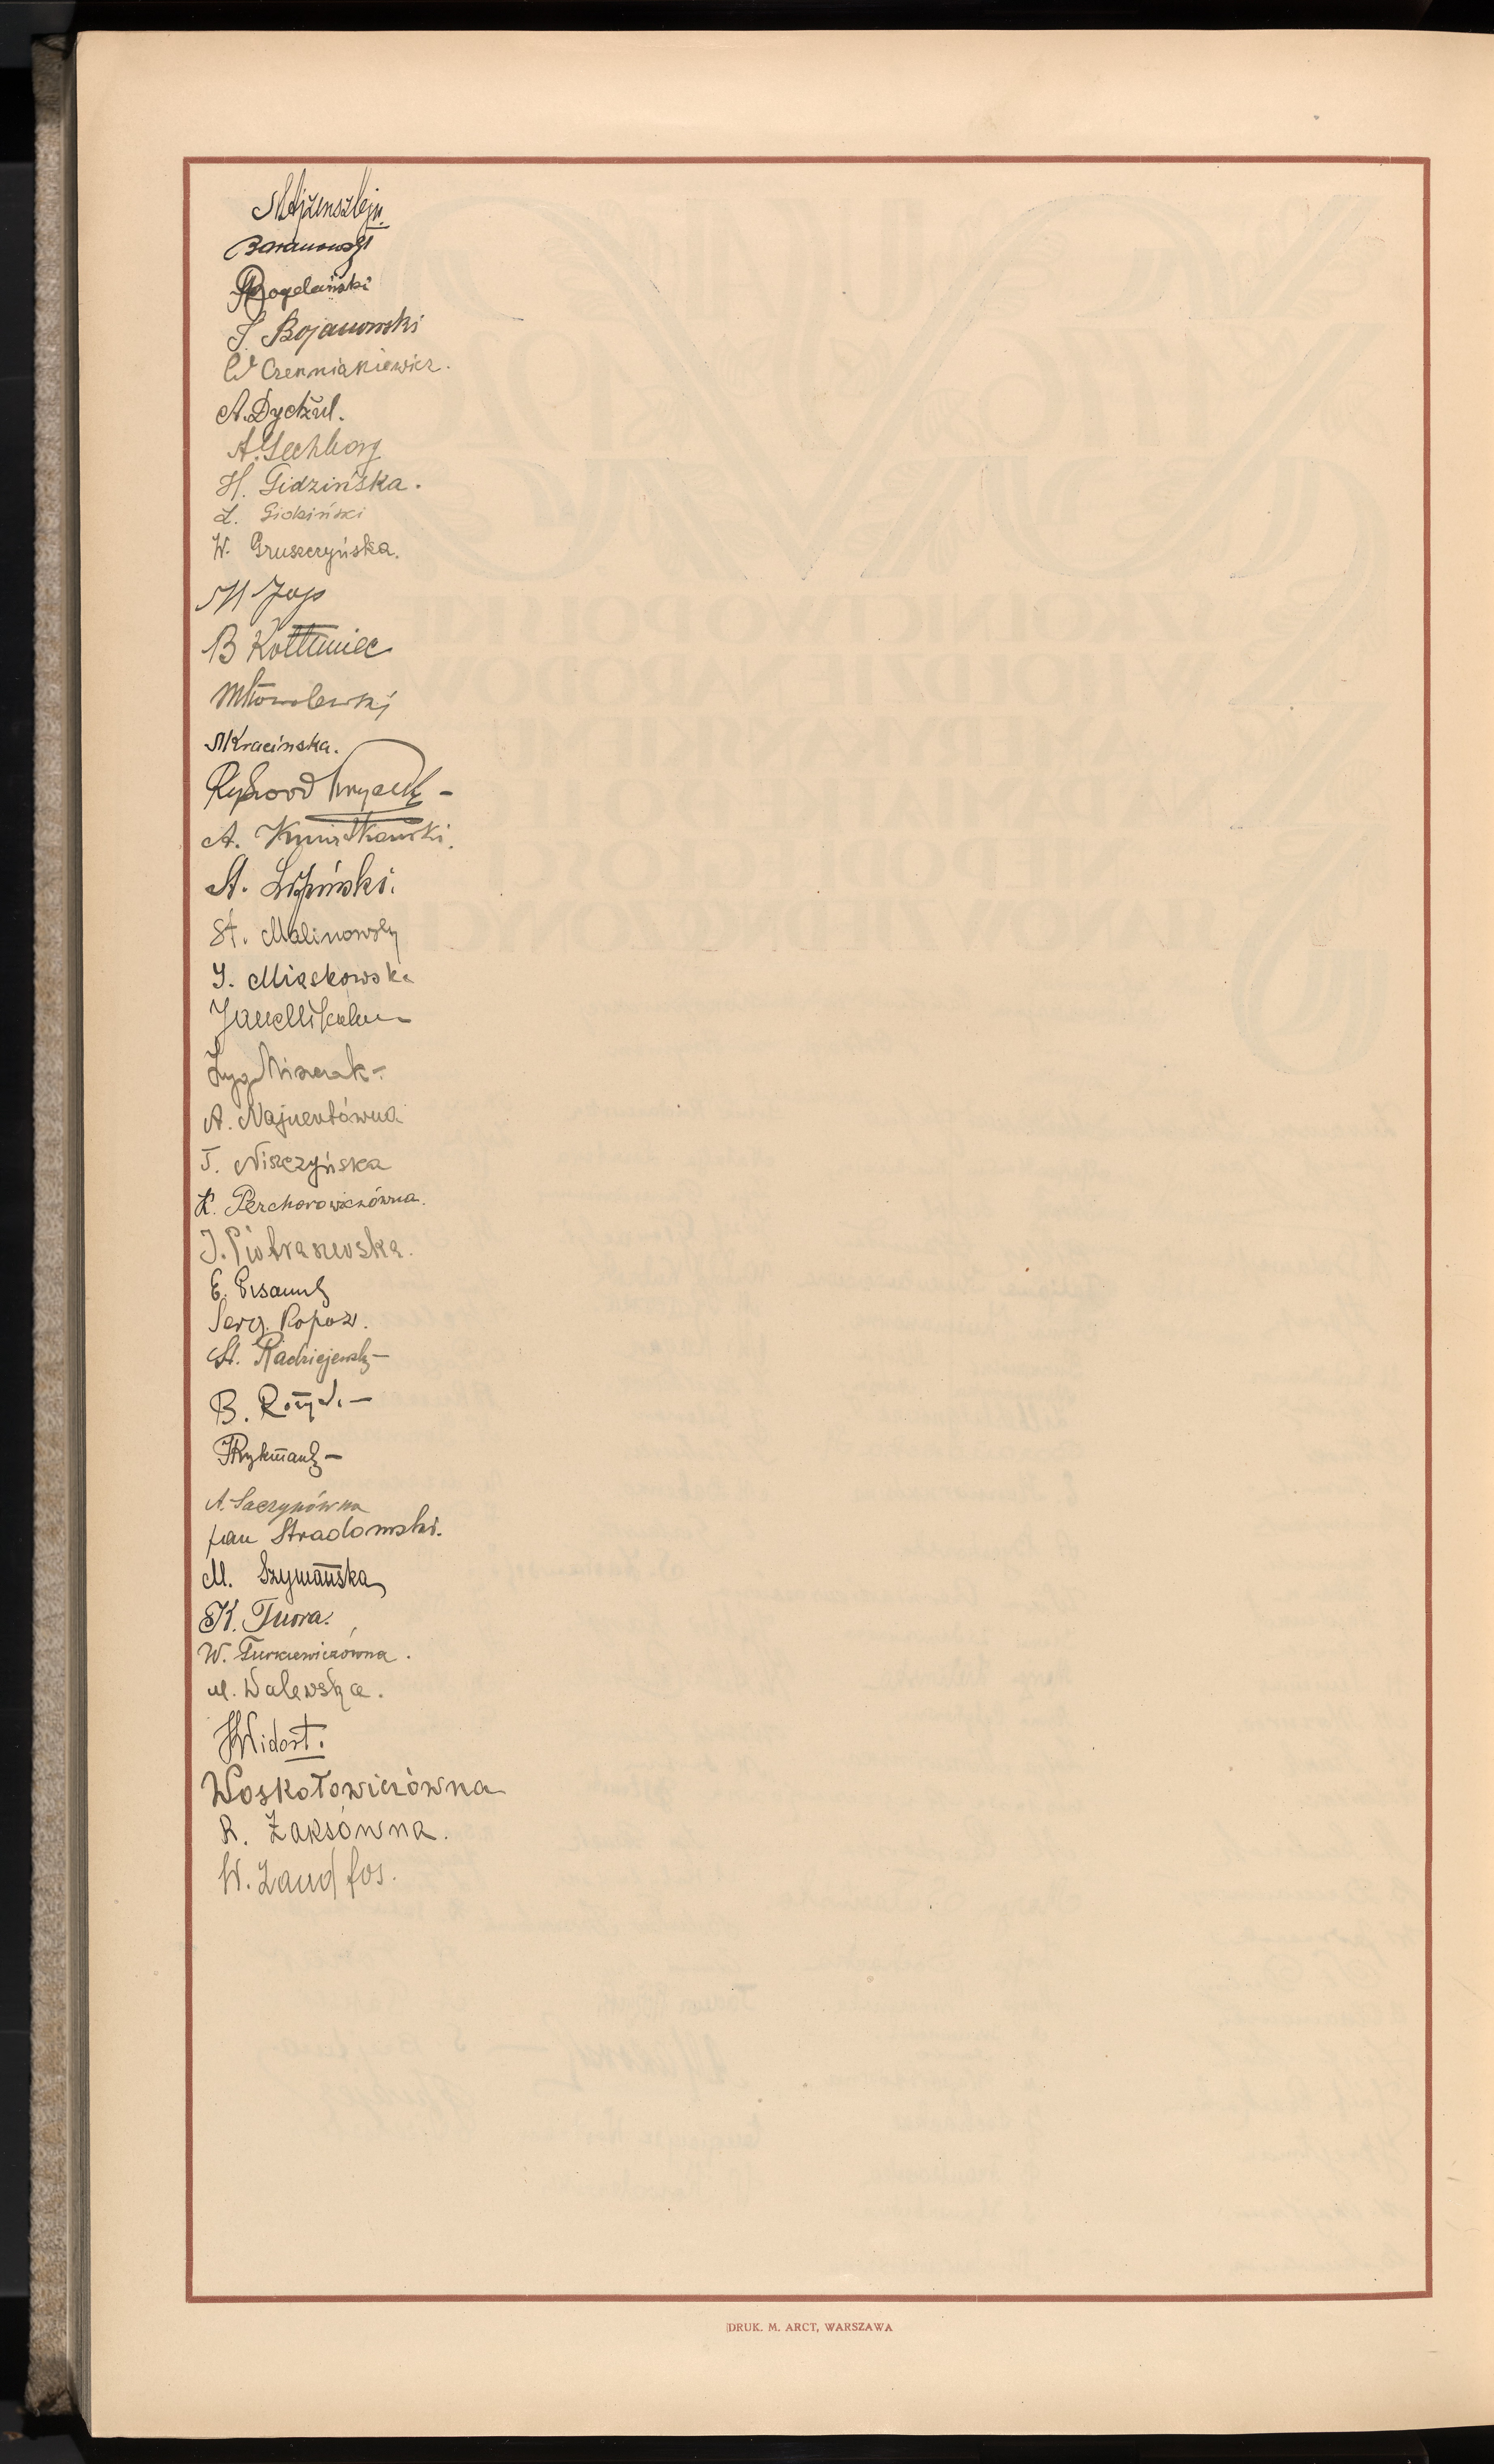 M Ajzensztejn
Baranowski
Bogdański
J. Bojanowski
W Czerniakiewicz.
A. Dyckul.
A. Gechborg
H. Gidzińska.
L. Gidziński
W. Gruszczyńska.
M Jop
B Kołtuniec
M Kowalewski
M Kracińska.
Ryszard
A. Kwiatkowski.
A. Lipiński.
St. Malinowski
J. Miaskowska
Jan
Zyg Miserak
A. Najnertówna
J. Niszczyńska
K. Perchorowiczówna.
J. Piotraszewska.
E. Pisanny
Serg. Popow.
St. Radziejewski
B.
Rykman
A. Saczynówna
Jan Stradomski.
M. Szymańska
K. Tuora.
W. Turkiewiczówna.
M. Walewska.
H Widort.
Woskołowiczówna
R. Zaksówna.
W. Zand fos.
DRUK. M. ARCT, WARSZAWA